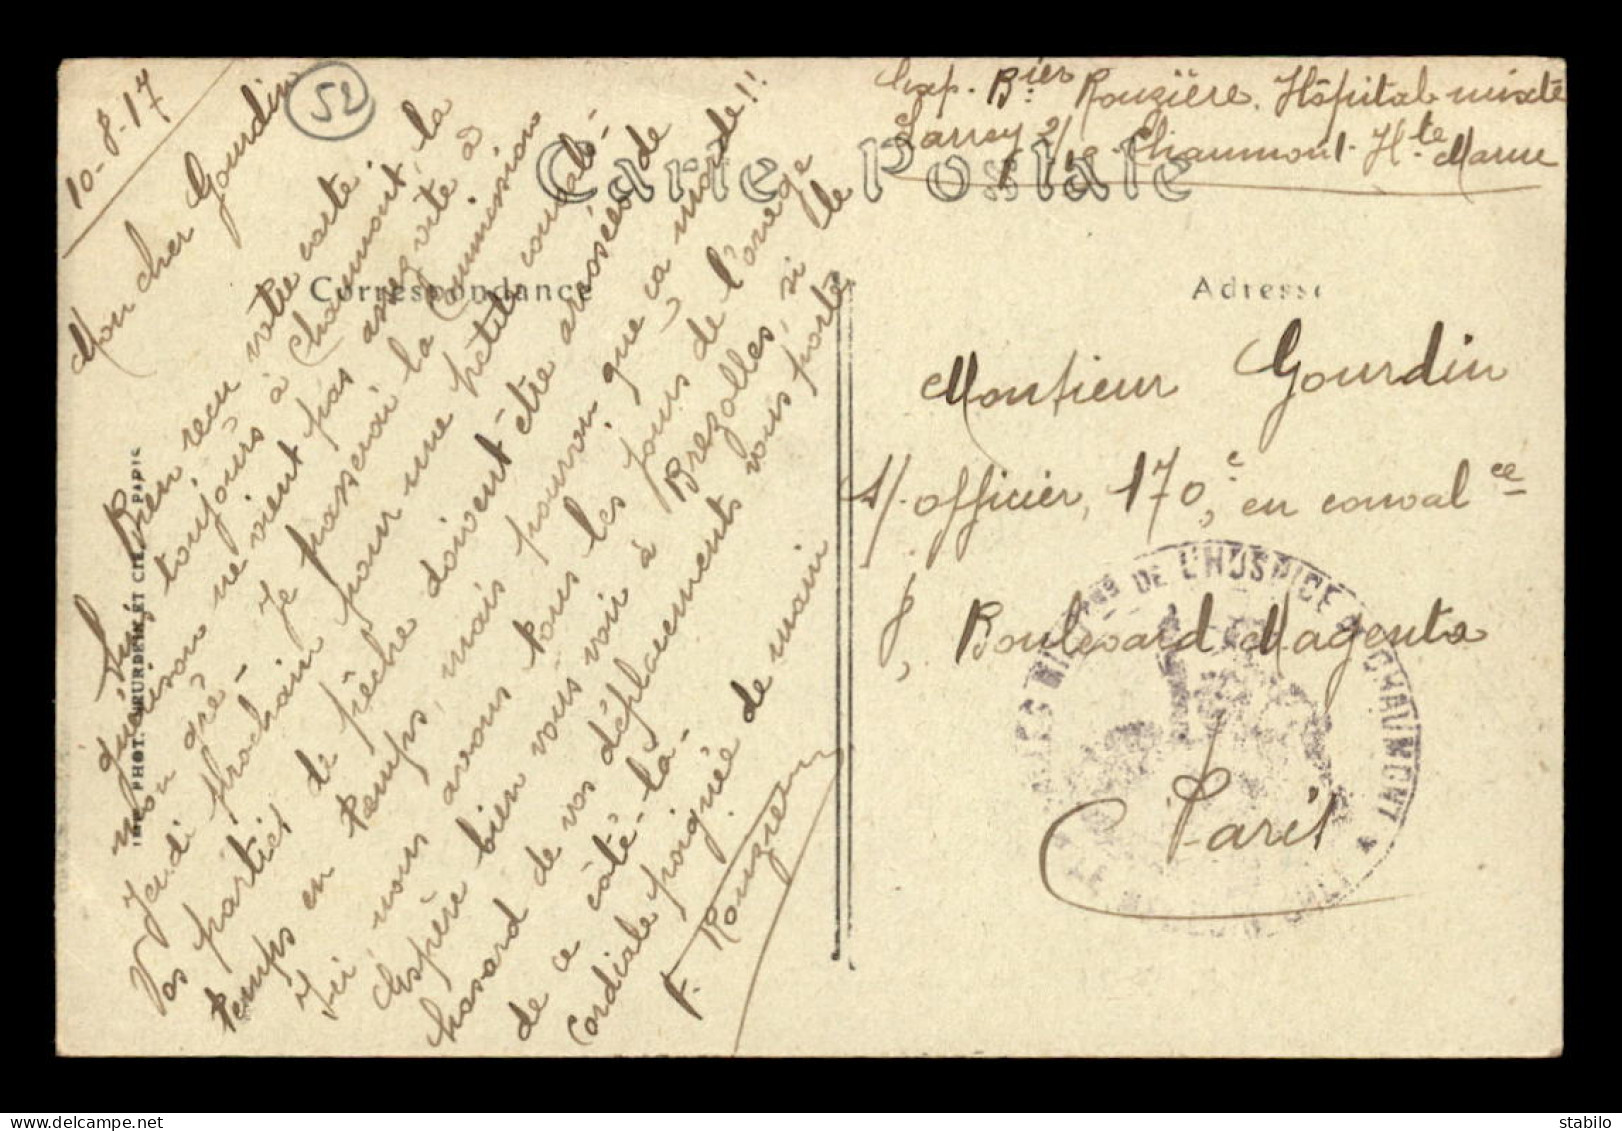 52
10-8-17
Mon cher Gourdin
Bien reçu votre carte.
Suis toujours à Chaumont, la
guérison ne vient pas assez vite à
mon gré - Je passerai la Commission
Jeudi prochain pour une petite convalo-
Vos parties de pêche doivent être arrosées de
temps en temps, mais pourvu que ça morde!!
Ici nous avons tous les jours de l'orage
Espère bien vous voir à Brezolles, si le
hasard de vos déplacements vous porte
de ce côté-là -
Cordiale poignée de main
F. Rouzière
Carte Postale
Correspondance
Adresse
IMP. PHOT. ET CIE. PARIS
Exp. Bier Rouzière. Hôpital mixte
Chaumont. Hte Marne
Monsieur Gourdin
S/.officier, 170e, en convalce
8, Boulevard Magenta
Paris
DE L'HOSPICE CHAUMONT